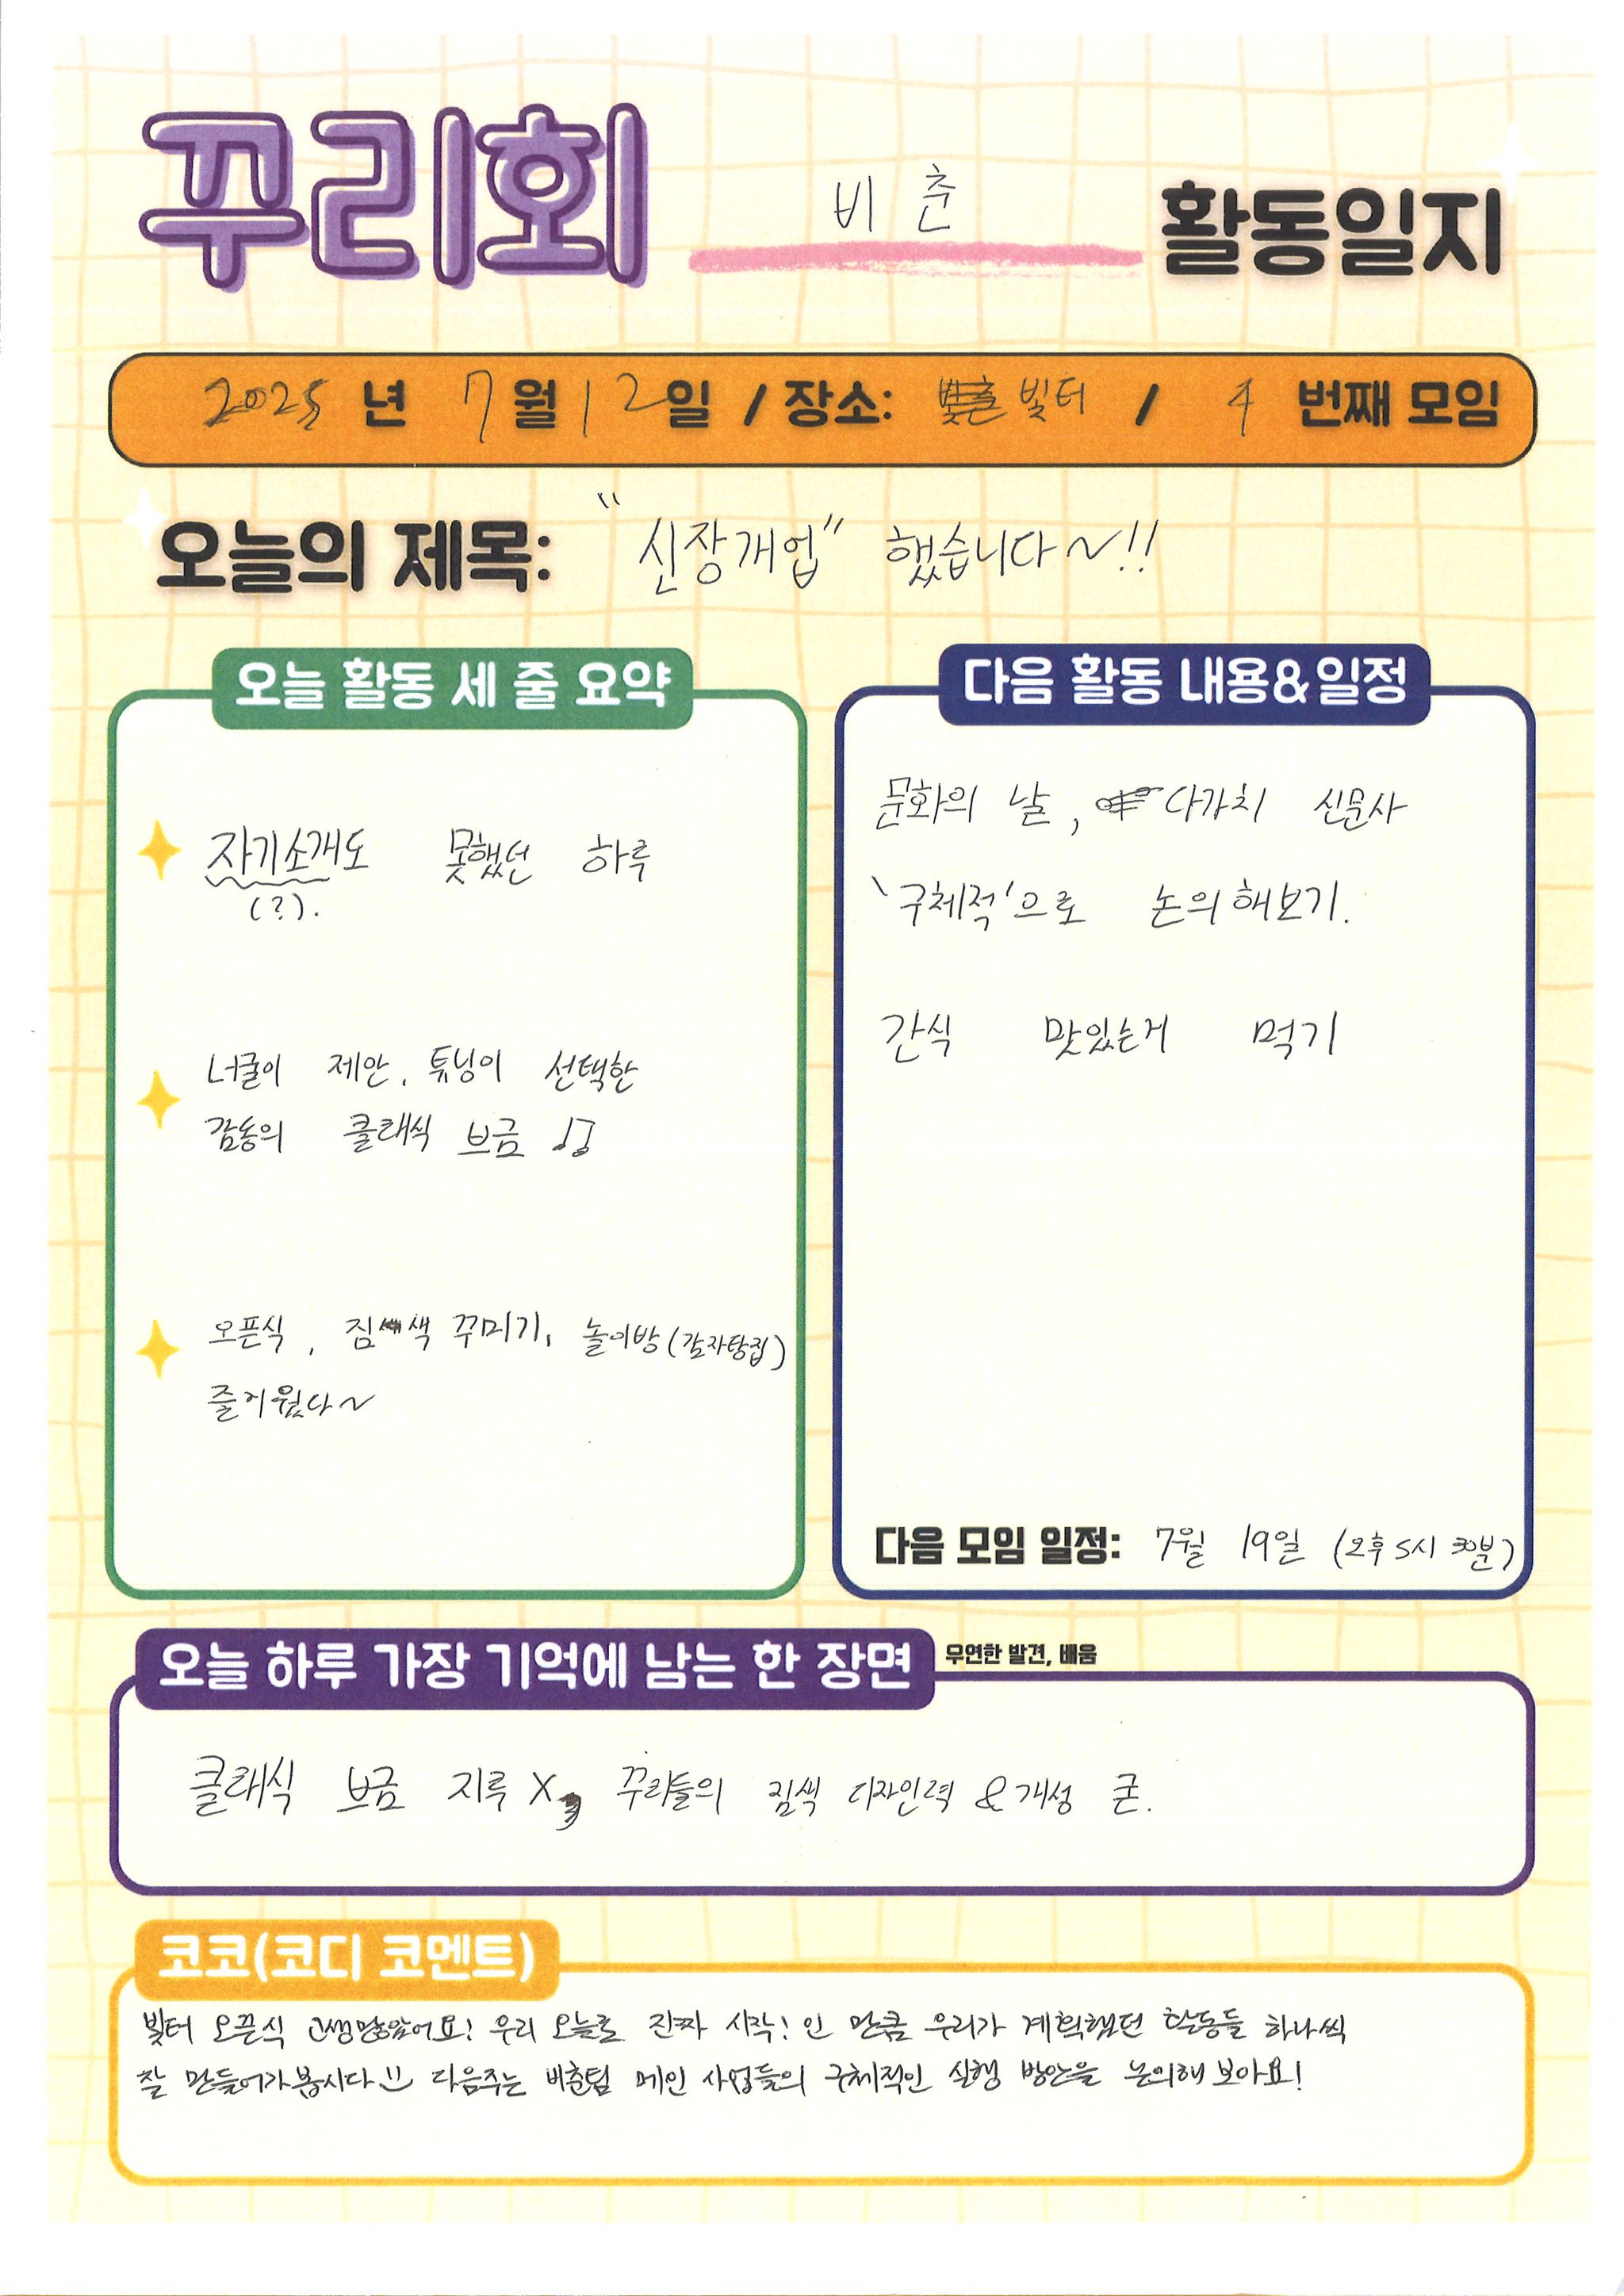 꾸리회 비춘 활동일지
2025 년 7 월 12일 / 장소: 빛터 / 4 번째 모임
오늘의 제목: "신장개업" 했습니다~!!
오늘 활동 세 줄 요약
자기소개도 못했던 하루
(?).
너굴이 제안, 튜닝이 선택한
감동의 클래식 브금 ♫
오픈식, 짐색 꾸미기, 놀이방(감자탕집)
즐거웠다~
다음 활동 내용&일정
문화의 날, 다가치 신문사
'구체적'으로 논의해보기.
간식 맛있는거 먹기
다음 모임 일정: 7월 19일 (오후 5시 30분)
오늘 하루 가장 기억에 남는 한 장면 우연한 발견, 배움
클래식 브금 지루 X, 꾸리들의 짐색 디자인력 & 개성 굳.
코코(코디 코멘트)
빛터 오픈식 고생많았어요! 우리 오늘로 진짜 시작! 인 만큼 우리가 계획했던 활동들 하나씩
잘 만들어가봅시다 다음주는 비춘팀 메인 사업들의 구체적인 실행 방안을 논의해 보아요!